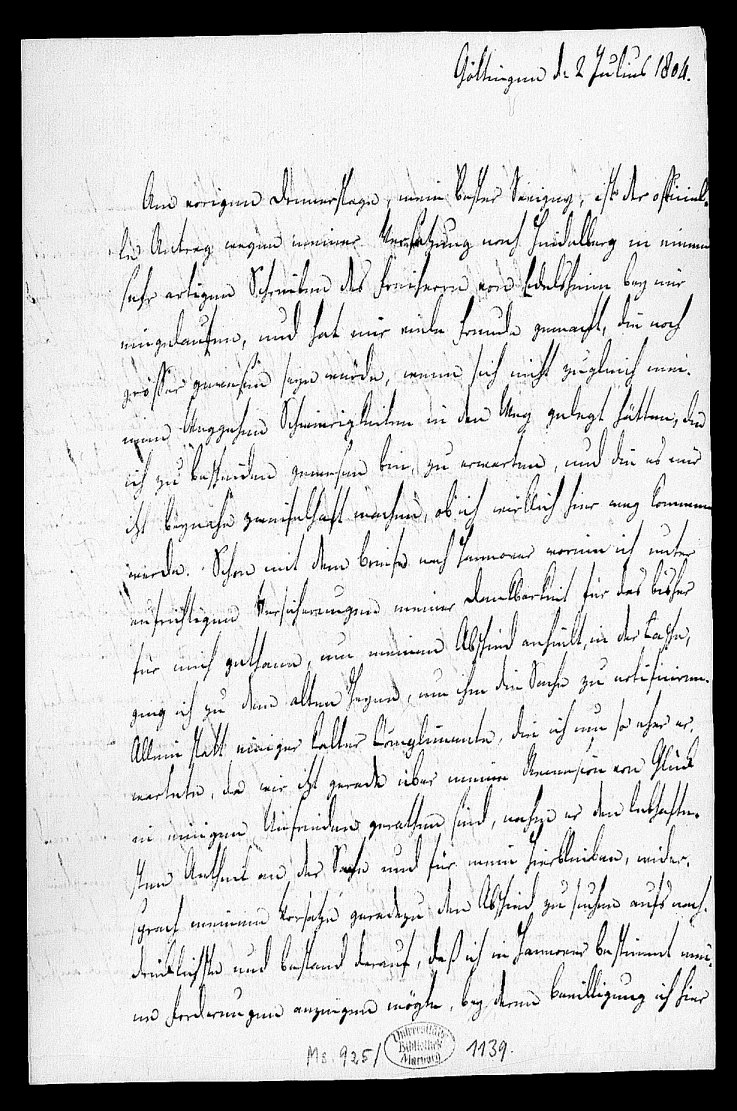 Göttingen d. 2 Julius 1804.
Am vorigen Donnerstage, mein bester Savigny, ist der officiel-
le Antrag wegen meiner Versetzung nach Heidelberg in einem
sehr artigen Schreiben des Freiherrn von Edelsheim bey mir
eingelaufen, und hat mir viele Freude gemacht, die noch
grösser gewesen seyn würde, wenn sich nicht zugleich mei-
nem Weggehen Schwierigkeiten in den Weg gelegt hätten, die
ich zu bescheiden gewesen bin, zu erwarten, und die es mir
izt beynahe zweifelhaft machen, ob ich wirklich hier weg kommen
werde. Schon mit dem Briefe nach Hannover worin ich unter
aufrichtigen Versicherungen meiner Dankbarkeit für das bisher
für mich gethane, um meinen Abschied anhielt, in der Tasche,
ging ich zu dem alten Heyne, um ihm die Sache zu notificiren.
Allein statt einiger kalter Complimente, die ich um so eher er-
wartete, da wir izt gerade über meine Recension von Glück
in einigen Unfrieden gerathen sind, nahm er den lebhafte-
sten Antheil an der Sache und für mein Hierbleiben, wider-
sprach meinem Vorsatze geradezu den Abschied zu suchen aufs nach-
drücklichste und bestand darauf, daß ich in Hannover bestimmt mei-
ne Forderungen anzeigen mögte, bey deren Bewilligung ich hier
Ms. 925/ 1139.
Universitäts
Bibliothek
Marburg